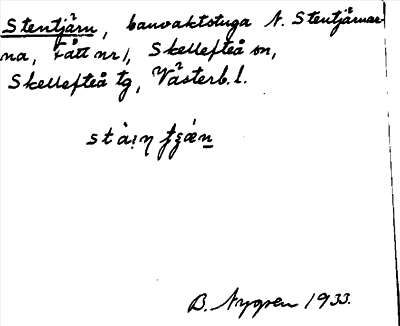 Stentjärn, banvaktstuga N. Stentjärnar-
na, Fått nr 1, Skellefteå sn,
Skellefteå tg, Västerb. l.
B. Nygren 1933.